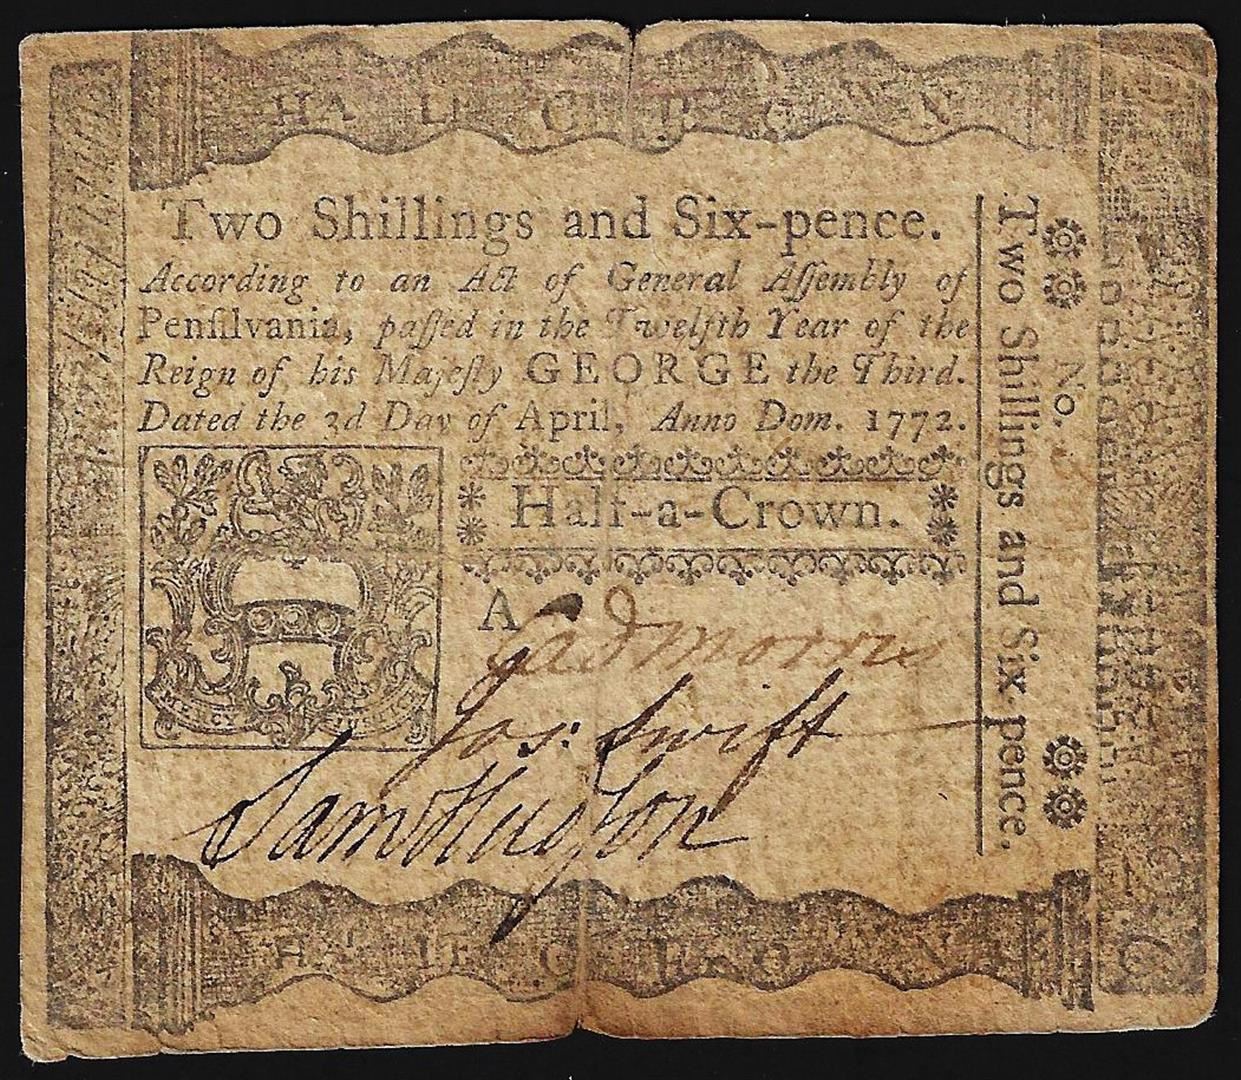 HALF CROWN
Two Shillings and Six-pence.
According to an Act of General Aſſembly of
Penſilvania, paſſed in the Twelfth Year of the
Reign of his Majeſty GEORGE the Third.
Dated the 3d Day of April, Anno Dom. 1772.
Half-a-Crown.
A
Cad Morris
Jos: Swift
MERCY JUSTICE
HALF CROWN
No.
Two Shillings and Six-pence.